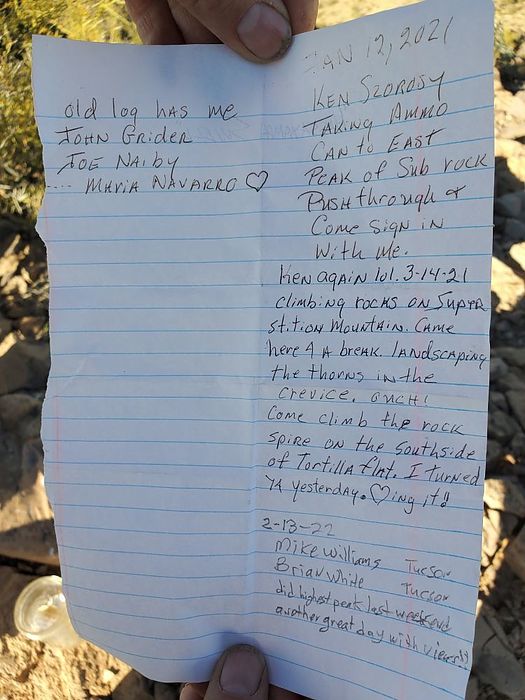 old log has me
John Grider
Joe Nalby
.... Maria Navarro ♡
Jan 12, 2021
Ken Szorosy
Taking Ammo
Can to East
Peak of Sub rock
Push through &
Come sign in
With me.
Ken again lol. 3-14-21
climbing rocks on Super
stition Mountain. Came
here 4 A break. landscaping
the thorns in the
crevice. ouch!
Come climb the rock
spire on the southside
of Tortilla flat. I turned
74 yesterday. ♡ing it!!
2-13-22
Mike Williams Tucson
Brian White Tucson
did highest peak last weekend
another great day with views!!